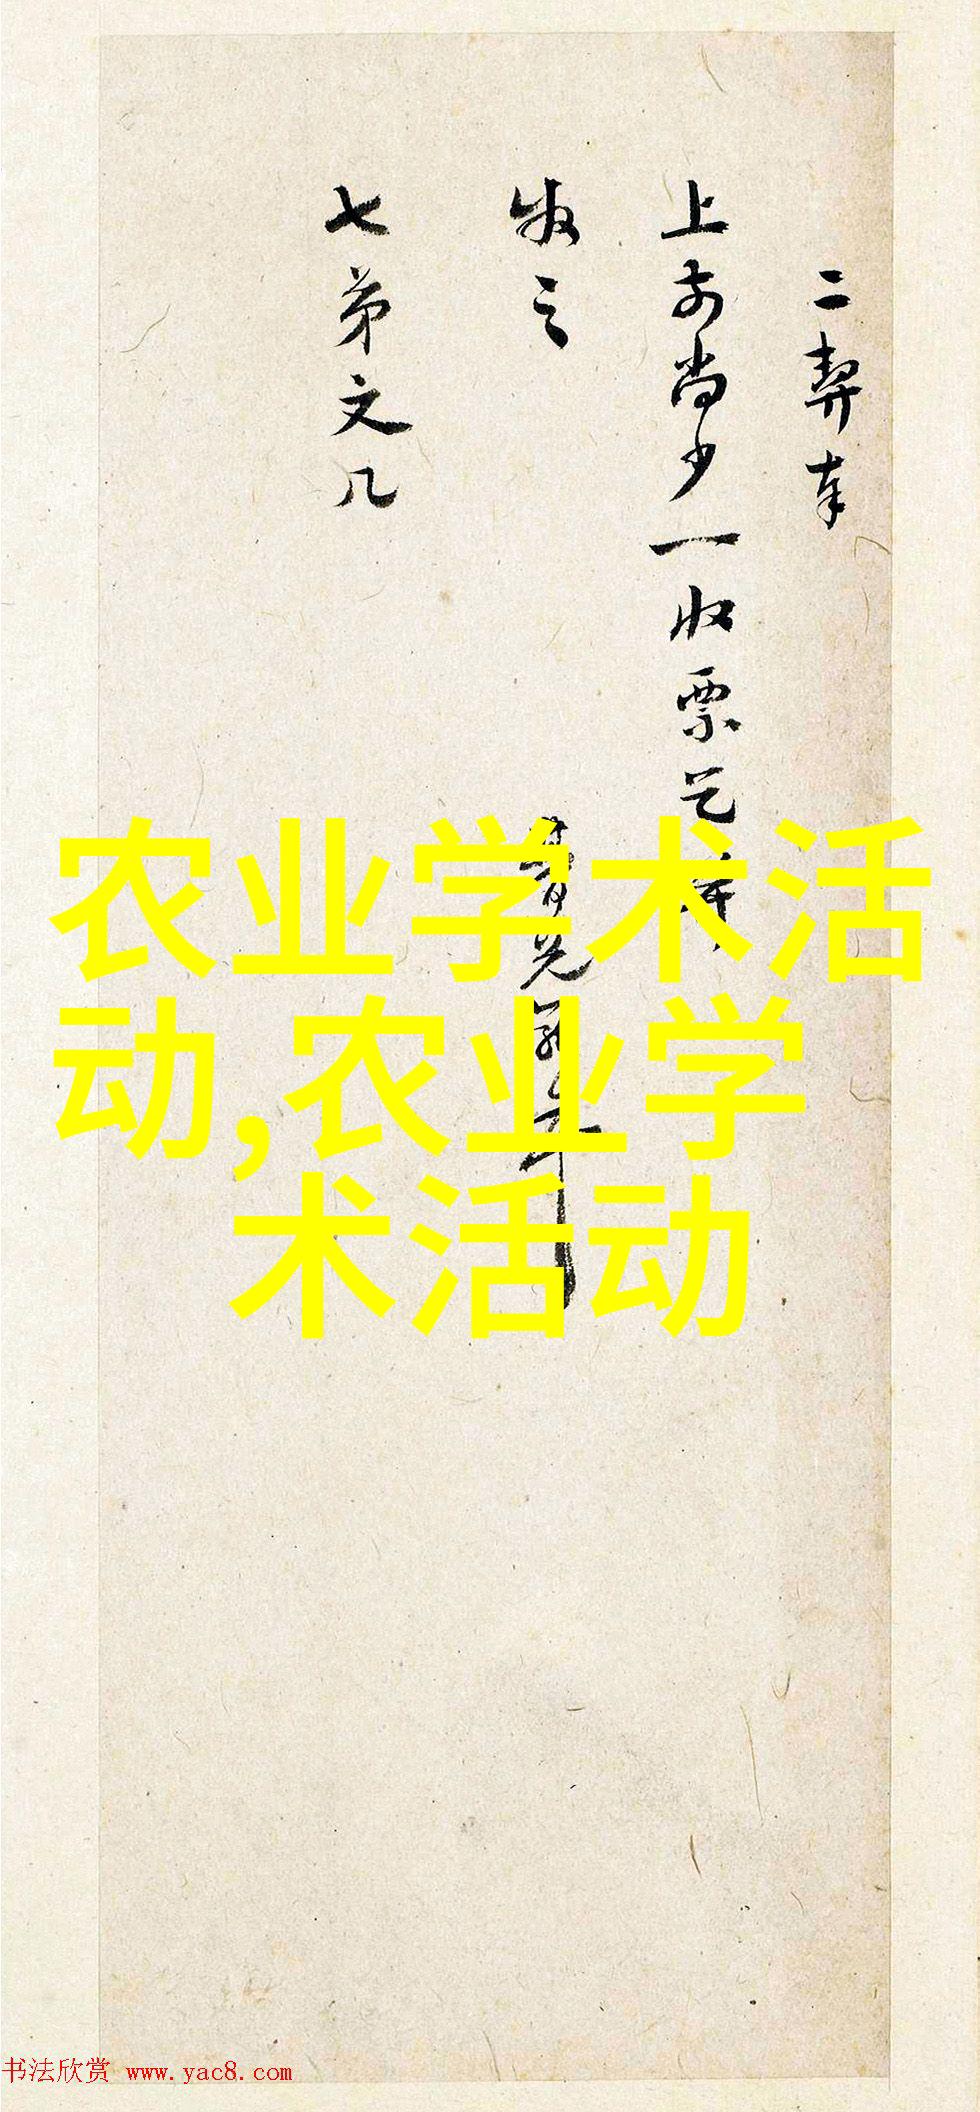 二契奉
上前尚少一收票乞
收之
七弟文几
农业学术活
动,农业学
术活动
书法欣赏 www.yac8.com